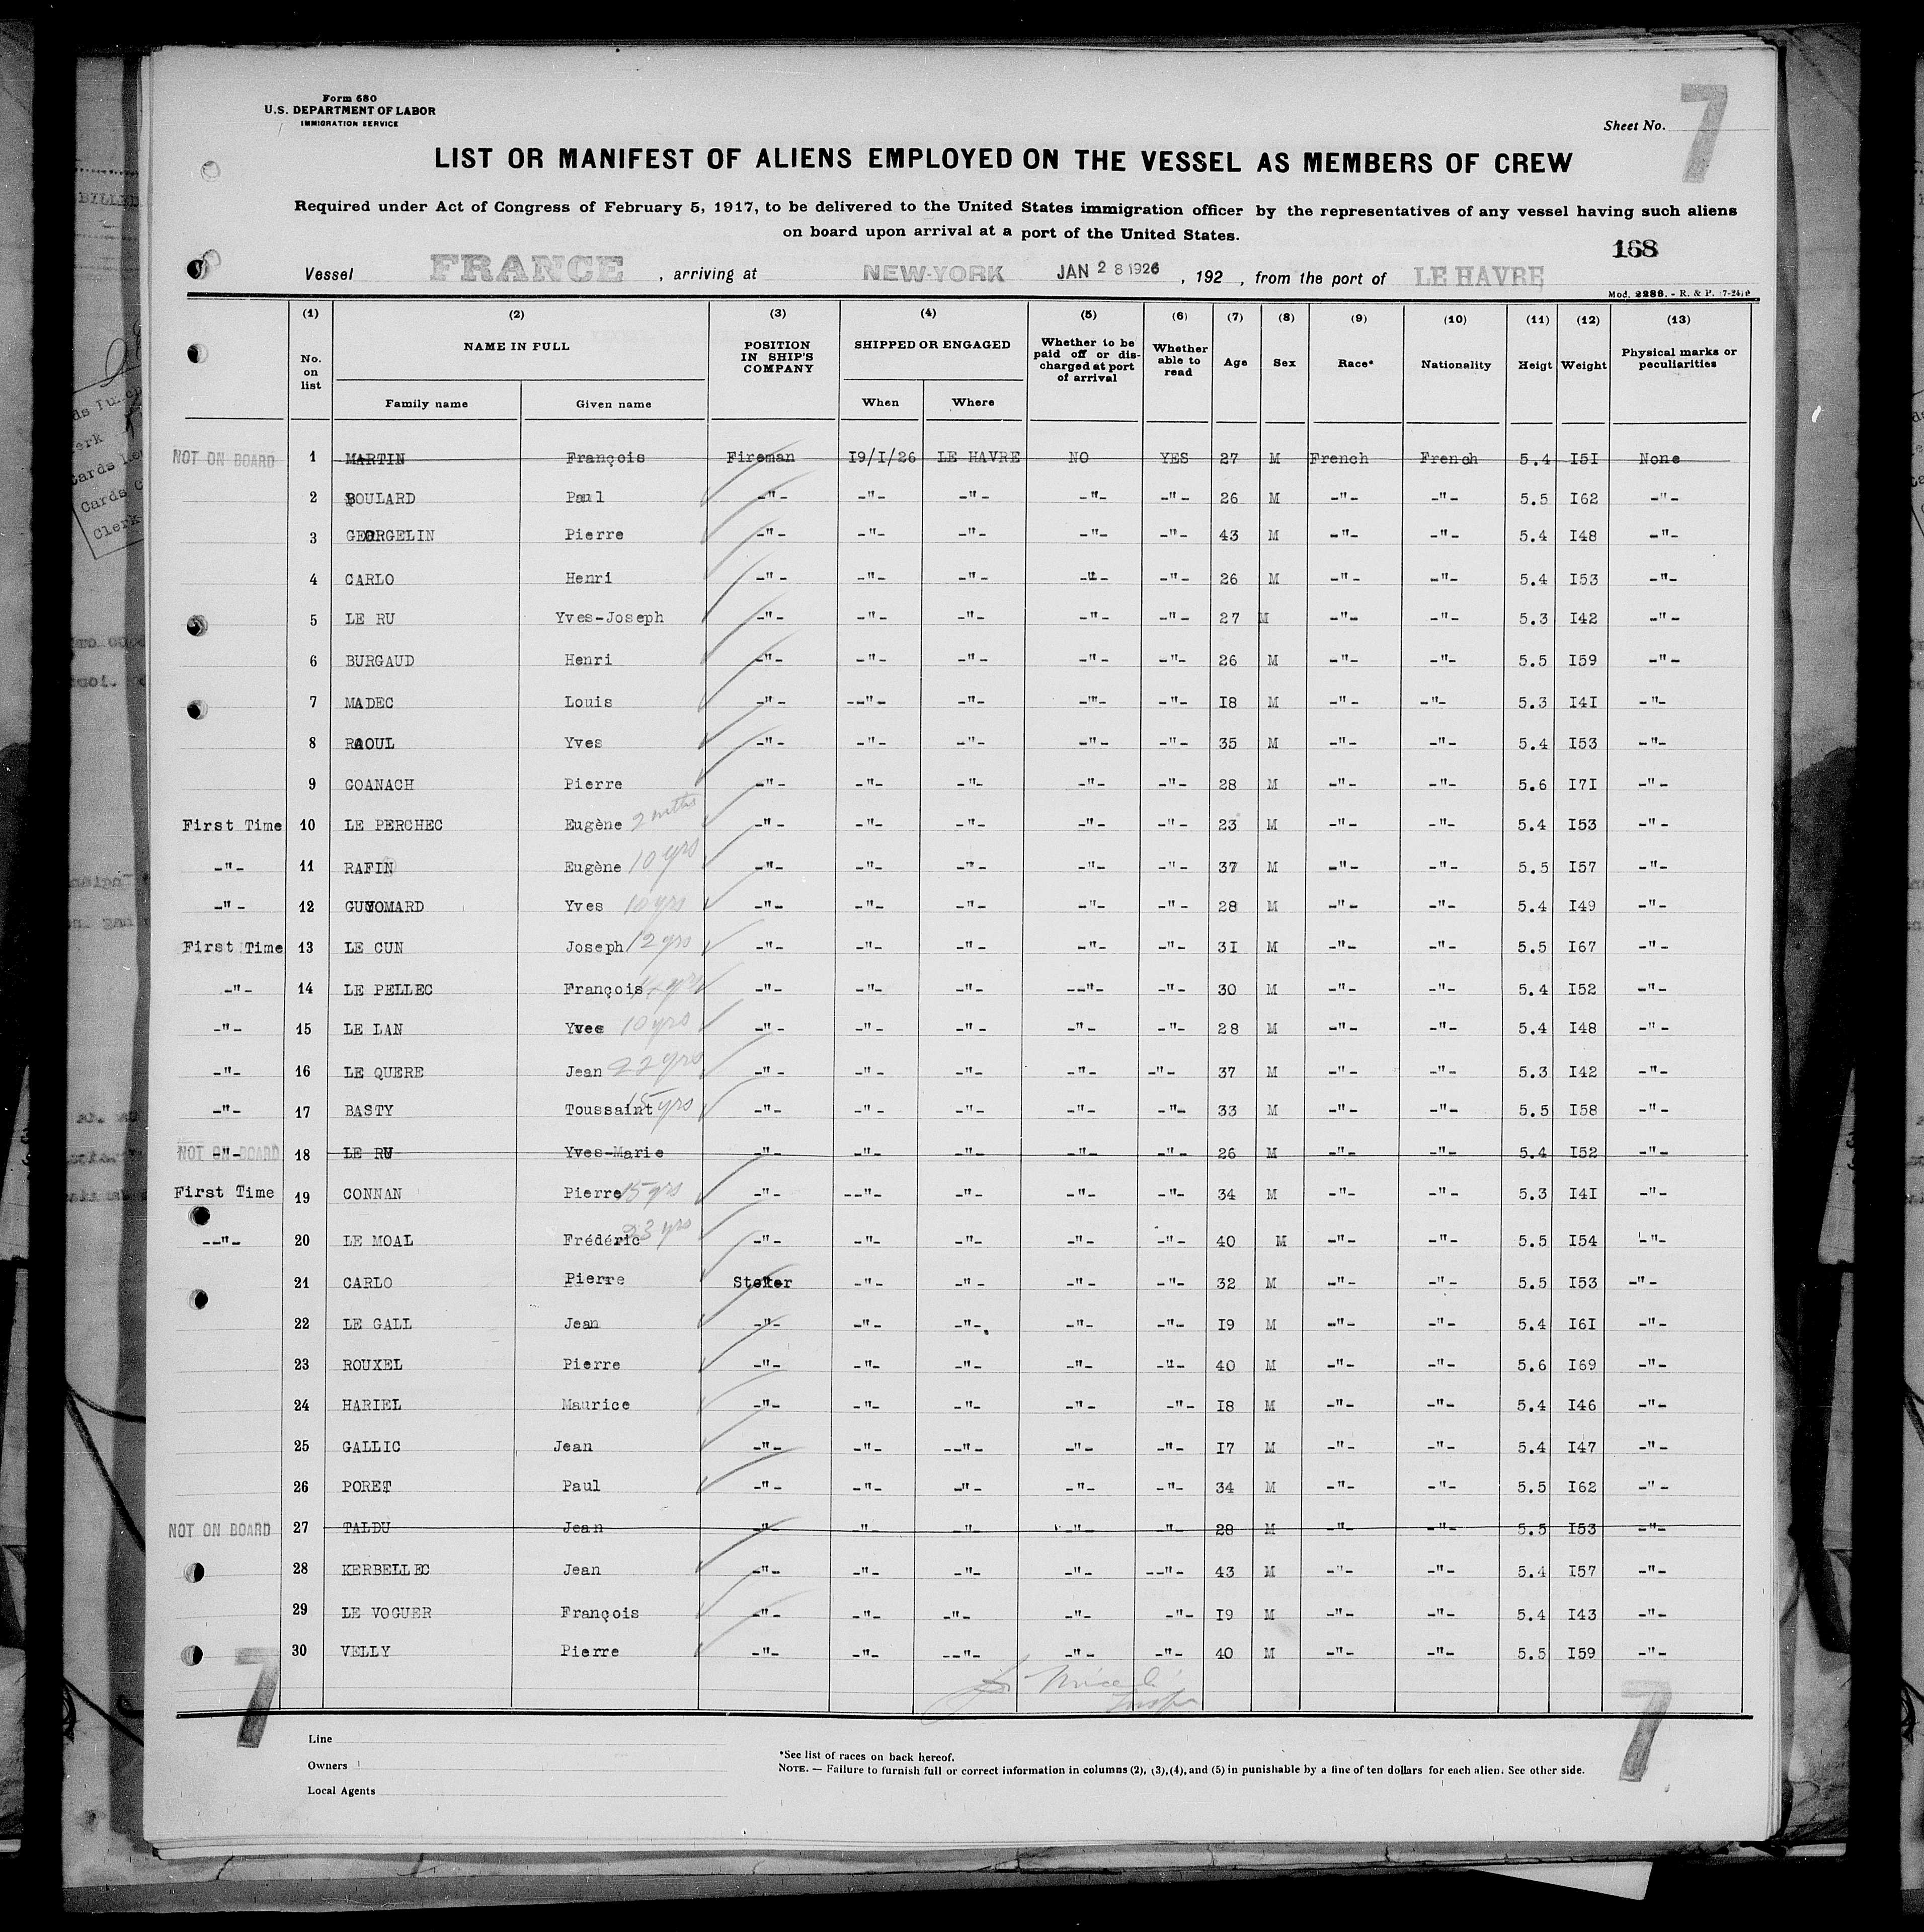 Form 680
U.S. DEPARTMENT OF LABOR
IMMIGRATION SERVICE
Sheet No. 7
LIST OR MANIFEST OF ALIENS EMPLOYED ON THE VESSEL AS MEMBERS OF CREW
Required under Act of Congress of February 5, 1917, to be delivered to the United States immigration officer by the representatives of any vessel having such aliens
on board upon arrival at a port of the United States.
168
Vessel FRANCE , arriving at NEW-YORK JAN 28 1926 , 192 , from the port of LE HAVRE
Mod. 2286. - R. & P.
(1) (2) (3) (4) (5) (6) (7) (8) (9) (10) (11) (12) (13)
No. on list NAME IN FULL Family name Given name POSITION IN SHIP'S COMPANY SHIPPED OR ENGAGED When Where Whether to be paid off or discharged at port of arrival Whether able to read Age Sex Race* Nationality Heigt Weight Physical marks or peculiarities
NOT ON BOARD 1 MARTIN François Fireman I9/I/26 LE HAVRE NO YES 27 M French French 5.4 I5I None
2 BOULARD Paul -"- -"- -"- -"- -"- 26 M -"- -"- 5.5 I62 -"-
3 GEORGELIN Pierre -"- -"- -"- -"- -"- 43 M -"- -"- 5.4 I48 -"-
4 CARLO Henri -"- -"- -"- -"- -"- 26 M -"- -"- 5.4 I53 -"-
5 LE RU Yves-Joseph -"- -"- -"- -"- -"- 27 M -"- -"- 5.3 I42 -"-
6 BURGAUD Henri -"- -"- -"- -"- -"- 26 M -"- -"- 5.5 I59 -"-
7 MADEC Louis -"- --"- -"- -"- -"- I8 M -"- -"- 5.3 I4I -"-
8 RAOUL Yves -"- -"- -"- -"- -"- 35 M -"- -"- 5.4 I53 -"-
9 GOANACH Pierre -"- -"- -"- -"- -"- 28 M -"- -"- 5.6 I7I -"-
First Time 10 LE PERCHEC Eugène 2 mths -"- -"- -"- -"- -"- 23 M -"- -"- 5.4 I53 -"-
-"- 11 RAFIN Eugène 10 yrs -"- -"- -"- -"- -"- 37 M -"- -"- 5.5 I57 -"-
-"- 12 GUYOMARD Yves 10 yrs -"- -"- -"- -"- -"- 28 M -"- -"- 5.4 I49 -"-
First Time 13 LE CUN Joseph 12 yrs -"- -"- -"- -"- -"- 3I M -"- -"- 5.5 I67 -"-
-"- 14 LE PELLEC François yrs -"- -"- -"- --"- -"- 30 M -"- -"- 5.4 I52 -"-
-"- 15 LE LAN Yves 10 yrs -"- -"- -"- -"- -"- 28 M -"- -"- 5.4 I48 -"-
-"- 16 LE QUERE Jean 22 yrs -"- -"- -"- -"- -"- 37 M -"- -"- 5.3 I42 -"-
-"- 17 BASTY Toussaint 15 yrs -"- -"- -"- -"- -"- 33 M -"- -"- 5.5 I58 -"-
NOT ON BOARD -"- 18 LE RU Yves-Marie -"- -"- -"- -"- -"- 26 M -"- -"- 5.4 I52 -"-
First Time 19 CONNAN Pierre 15 yrs -"- --"- -"- -"- -"- 34 M -"- -"- 5.3 I4I -"-
--"- 20 LE MOAL Frédéric 23 yrs -"- -"- -"- -"- -"- 40 M -"- -"- 5.5 I54 -"-
21 CARLO Pierre Stoker -"- -"- -"- -"- 32 M -"- -"- 5.5 I53 -"-
22 LE GALL Jean -"- -"- -"-. -"- -"- I9 M -"- -"- 5.4 I6I -"-
23 ROUXEL Pierre -"- -"- -"- -"- -"- 40 M -"- -"- 5.6 I69 -"-
24 HARIEL Maurice -"- -"- -"- -"- -"- I8 M -"- -"- 5.4 I46 -"-
25 GALLIC Jean -"- -"- --"- -"- -"- I7 M -"- -"- 5.4 I47 -"-
26 PORET Paul -"- -"- -"- -"- -"- 34 M -"- -"- 5.5 I62 -"-
NOT ON BOARD 27 TALDU Jean -"- -"- -"- -"- -"- 28 M -"- -"- 5.5 I53 -"-
28 KERBELLEC Jean -"- -"- -"- -"- --"- 43 M -"- -"- 5.4 I57 -"-
29 LE VOGUER François -"- -"- -"- -"- -"- I9 M -"- -"- 5.4 I43 -"-
30 VELLY Pierre -"- -"- --"- -"- -"- 40 M -"- -"- 5.5 I59 -"-
7 7
Line
Owners
Local Agents
*See list of races on back hereof.
NOTE. — Failure to furnish full or correct information in columns (2), (3), (4), and (5) in punishable by a fine of ten dollars for each alien. See other side.